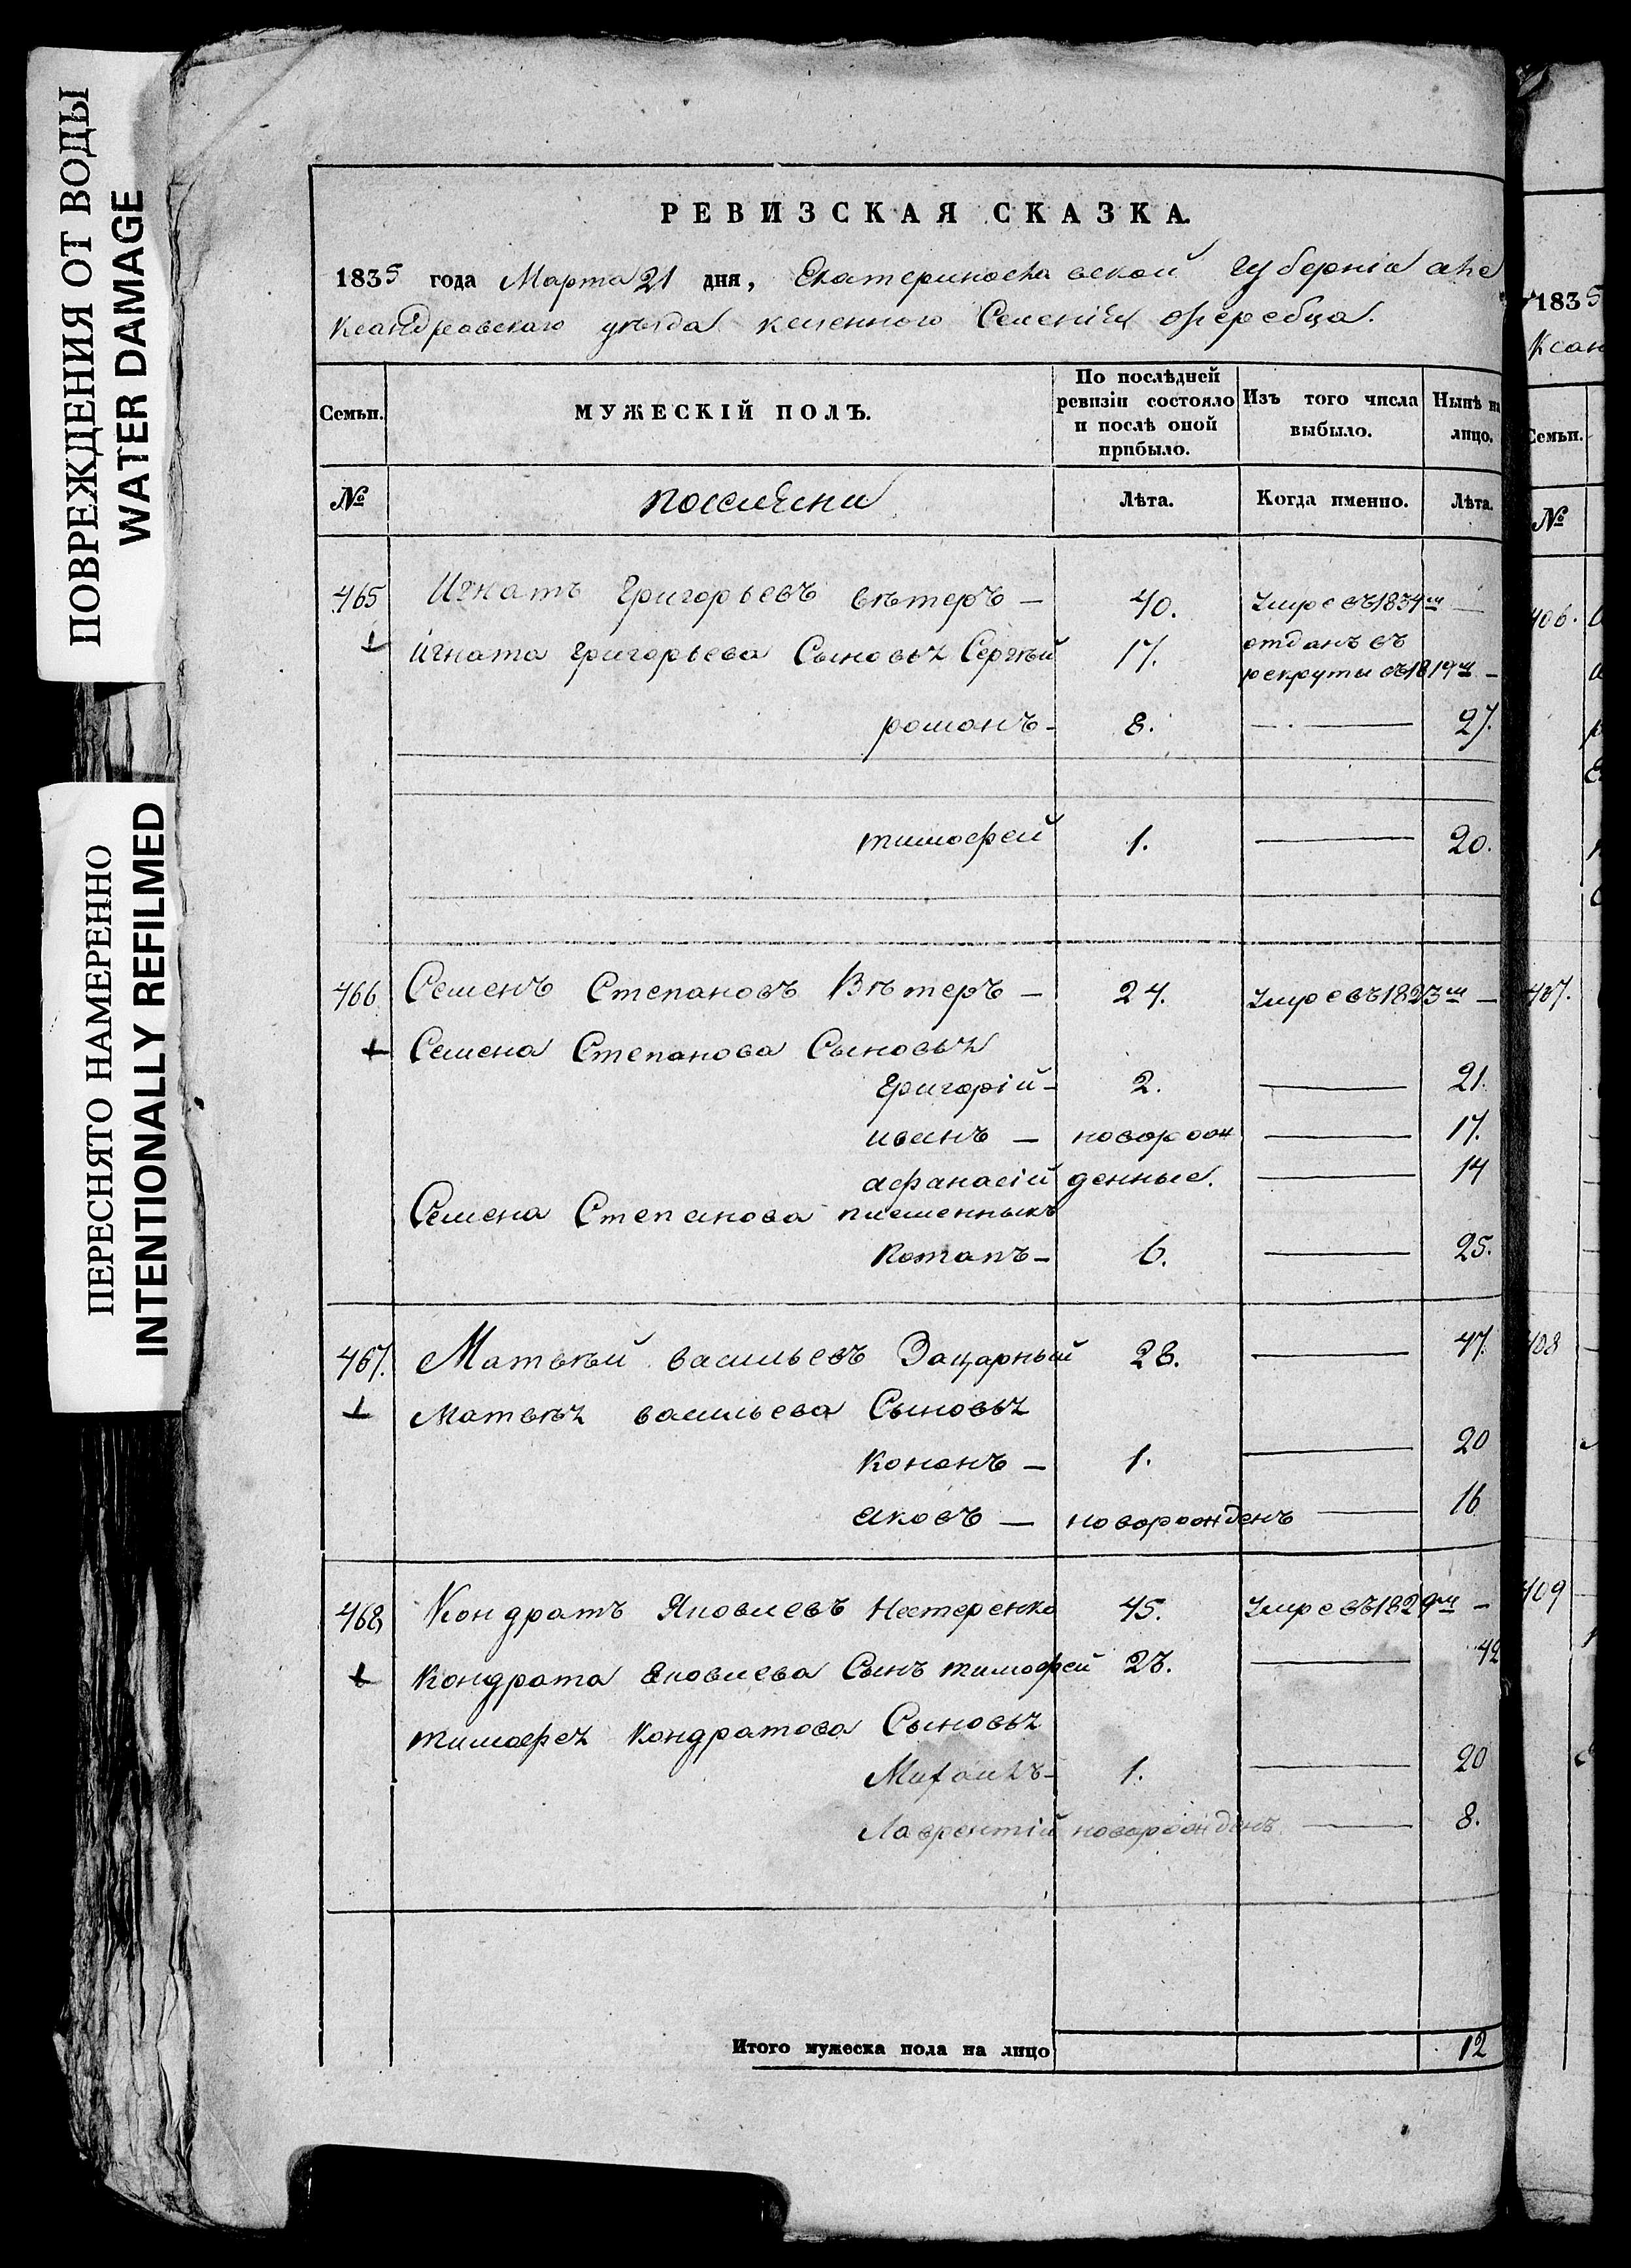 ПОВРЕЖДЕНИЯ ОТ ВОДЫ
WATER DAMAGE
ПЕРЕСНЯТО НАМЕРЕННО
INTENTIONALLY REFILMED
РЕВИЗСКАЯ СКАЗКА.
1835 года Марта 21 дня, Екатеринославской губерніи але
ксандровскаго уѣзда казенного Селенія жеребца.
Семьи. МУЖЕСКІЙ ПОЛЪ. По послѣдней ревизіи состояло и послѣ оной прибыло. Изъ того числа выбыло. Нынѣ на лицо.
№ поселяни Лѣта. Когда именно. Лѣта.
465 Игнатъ Григорьевъ вѣтеръ — 40. умре въ 1834м —
Игната григорьева Сыновья Сергѣй 17. отданъ въ рекруты въ 1819м —
романъ — 8. — 27.
тимофей 1. — 20.
466 Семенъ Степановъ Вѣтеръ — 24. умре въ 1823м —
Семена Степанова Сыновья
Григорій — 2. — 21.
иванъ — новорож — 17.
афанасій денные. — 14
Семена Степанова племенникъ
Потапъ — 6. — 25.
467. Матвѣй васильевъ Зацарный 28. — 47.
Матвѣя васильева Сыновья
Кононъ — 1. — 20
яковъ — новорожденъ — 16
468 Кондратъ Яковлевъ Нестеренко 45. умре въ 1829м —
Кондрата Яковлева Сынъ тимофей 23. — 42
тимофея Кондратова Сыновья
Михаилъ — 1. — 20
Лаврентій новорожденъ — 8.
Итого мужеска пола на лицо 12
1835
Ксан
Семьи.
№
406.
407.
408
409